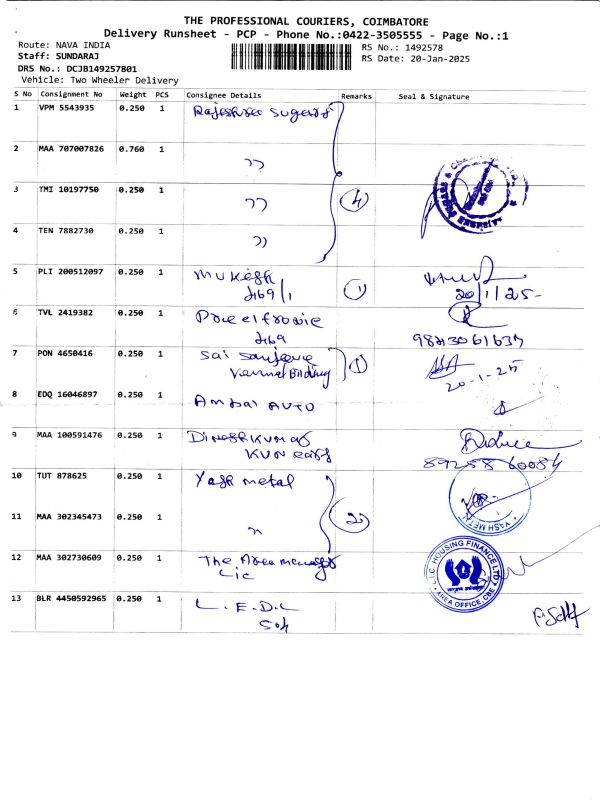 THE PROFESSIONAL COURIERS, COIMBATORE
Delivery Runsheet - PCP - Phone No.:0422-3505555 - Page No.:1
Route: NAVA INDIA
RS No.: 1492578
Staff: SUNDARAJ
RS Date: 20-Jan-2025
DRS No.: DCJB149257801
Vehicle: Two Wheeler Delivery
S No Consignment No Weight PCS Consignee Details Remarks Seal & Signature
1 VPM 5543935 0.250 1
2 MAA 707007826 0.760 1 ''
3 TMI 10197750 0.250 1 '' 4
4 TEN 7882730 0.250 1 ''
5 PLI 200512097 0.250 1 Mukesh 1
20/1/25-
6 TVL 2419382 0.250 1
9843061634
7 PON 4650416 0.250 1 Sai 1
20-1-25
8 EDQ 16046897 0.250 1 Ambal AUTO
9 MAA 100591476 0.250 1 DINESH KUMAR
10 TUT 878625 0.250 1 Yash metal
YASH METAL
11 MAA 302345473 0.250 1 '' 2
12 MAA 302730609 0.250 1 The Area manager
Lic
LIC HOUSING FINANCE LTD
AREA OFFICE CBE
13 BLR 4450592965 0.250 1 L.E.D.L